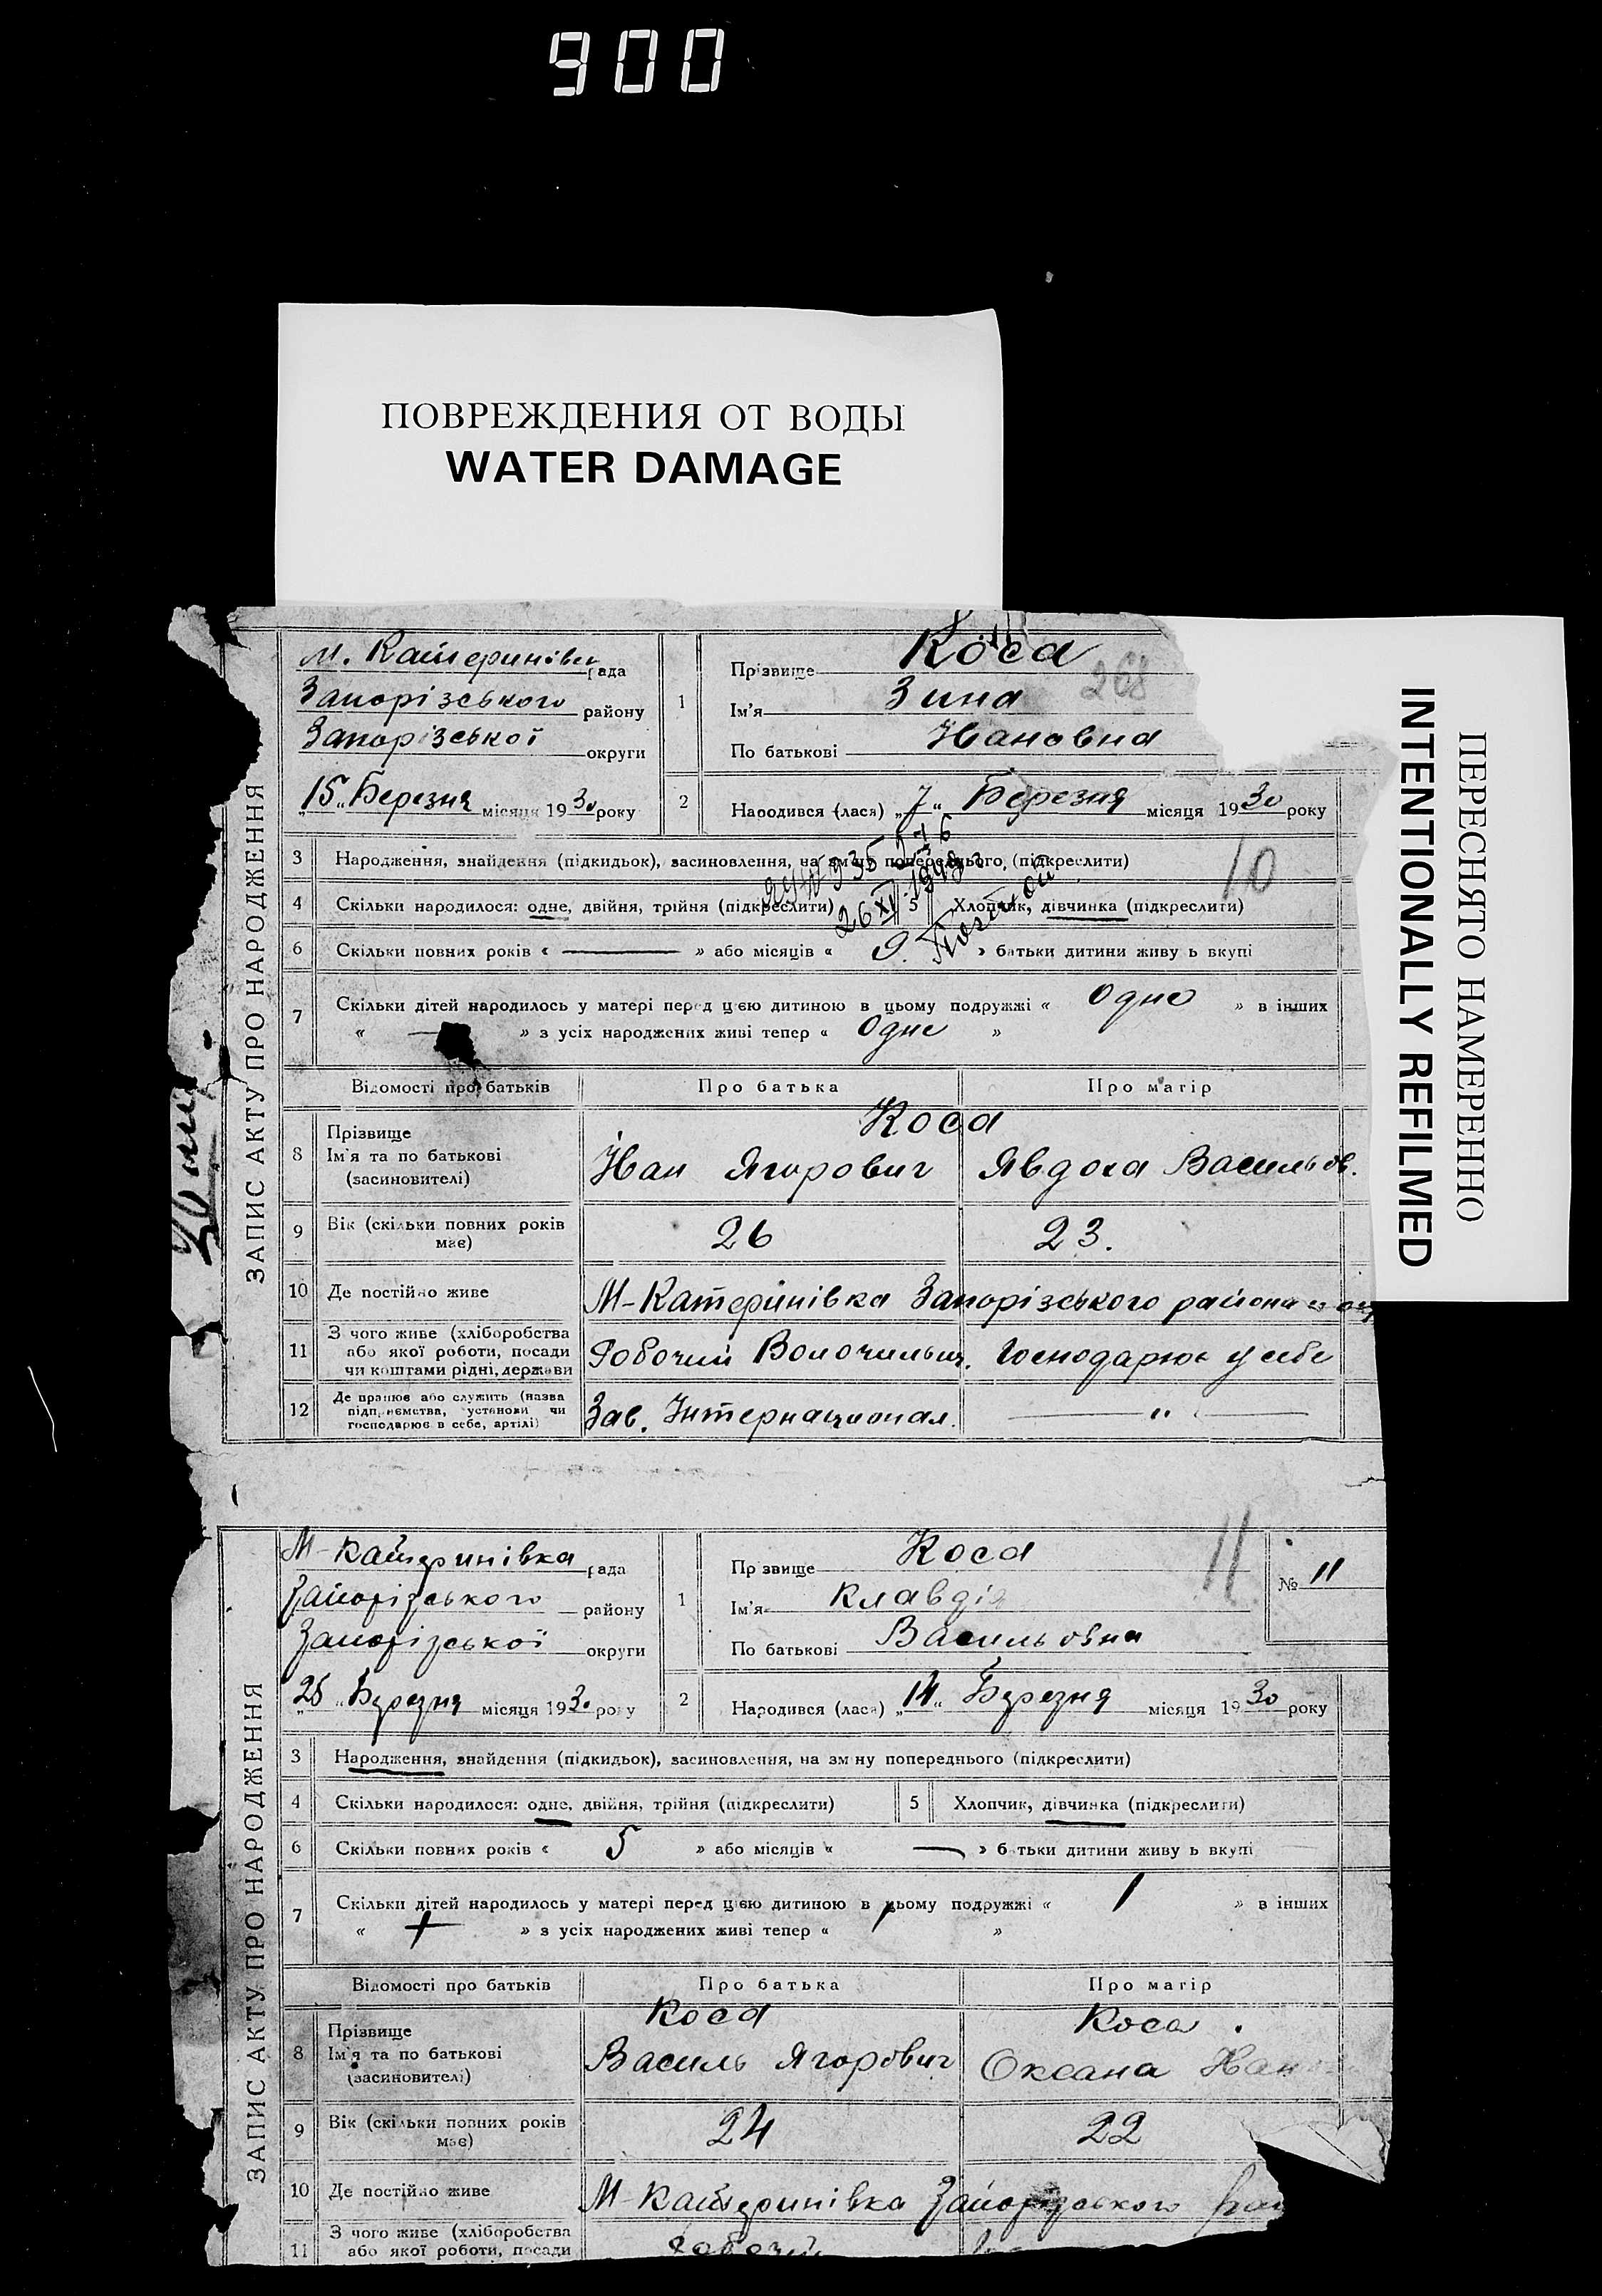 900
ПОВРЕЖДЕНИЯ ОТ ВОДЫ
WATER DAMAGE
ПЕРЕСНЯТО НАМЕРЕННО
INTENTIONALLY REFILMED
ЗАПИС АКТУ ПРО НАРОДЖЕННЯ
м. Катеринівка рада
Запорізського району
Запорізської округи
„15„ Березня місяця 1930 року
1 Прізвище Коса
268
Ім'я Зина
По батькові Ивановна
2 Народився (лася) „7„ Березня місяця 1930 року
10
3 Народження, знайдення (підкидьок), засиновлення, на зміну попереднього (підкреслити)
4 Скільки народилося: одне, двійня, трійня (підкреслити) 5 Хлопчик, дівчинка (підкреслити)
6 Скільки повних років « — » або місяців « 9 » батьки дитини живуть вкупі
7 Скільки дітей народилось у матері перед цією дитиною в цьому подружжі « Одно » в інших
« — » з усіх народжених живі тепер « Одне »
Відомості про батьків Про батька Про матір
8 Прізвище Коса
Ім'я та по батькові Иван Ягорович Явдоха Васильов.
(засиновителі)
9 Вік (скільки повних років має) 26 23.
10 Де постійно живе М-Катеринівка Запорізського района
11 З чого живе (хліборобства Робочий Волочильщ. Господарює у себе
або якої роботи, посади
чи коштами рідні, держави
12 Де працює або служить (назва Зав. Интернационал. — „ —
підприємства, установи чи
господарює в себе, артілі)
ЗАПИС АКТУ ПРО НАРОДЖЕННЯ
М-Катеринівка рада
Запорізського району
Запорізської округи
„25„ Березня місяця 1930 року
1 Прізвище Коса
11
№ 11
Ім'я Клавдія
По батькові Васильовна
2 Народився (лася) „14„ Березня місяця 1930 року
3 Народження, знайдення (підкидьок), засиновлення, на зміну попереднього (підкреслити)
4 Скільки народилося: одне, двійня, трійня (підкреслити) 5 Хлопчик, дівчинка (підкреслити)
6 Скільки повних років « 5 » або місяців « — » батьки дитини живуть вкупі
7 Скільки дітей народилось у матері перед цією дитиною в цьому подружжі « 1 » в інших
« + » з усіх народжених живі тепер « 1 »
Відомості про батьків Про батька Про матір
8 Прізвище Коса Коса.
Ім'я та по батькові Василь Ягорович Оксана Иван
(засиновителі)
9 Вік (скільки повних років має) 24 22
10 Де постійно живе М-Катеринівка Запорізського
11 З чого живе (хліборобства Робочий
або якої роботи, посади